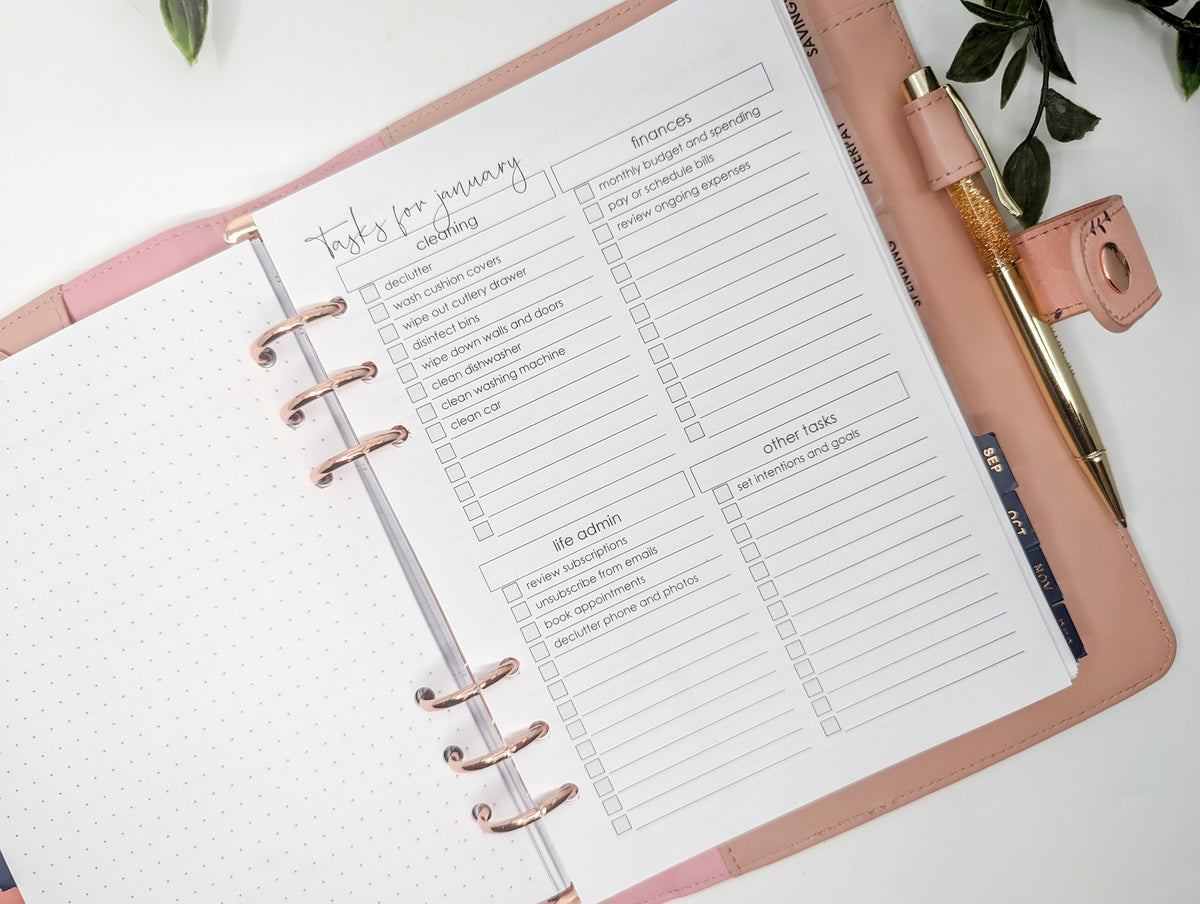 tasks for january
cleaning
declutter
wash cushion covers
wipe out cutlery drawer
disinfect bins
wipe down walls and doors
clean dishwasher
clean washing machine
clean car
life admin
review subscriptions
unsubscribe from emails
book appointments
declutter phone and photos
finances
monthly budget and spending
pay or schedule bills
review ongoing expenses
other tasks
set intentions and goals
SAVING
AFTERPAY
SPENDING
SEP
OCT
NOV